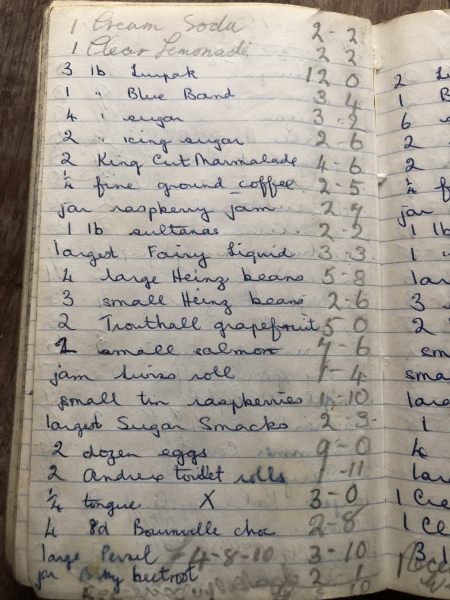 1 Cream Soda 2-2
1 Clear Lemonade 2 2
3 lb Lurpak 12 0
1 " Blue Band 3 4
4 " sugar 3-2
2 " icing sugar 2-6
2 King Cut Marmalade 4-6
¼ fine ground coffee 2-5
jar raspberry jam 2-9
1 lb sultanas 2-2
largest Fairy Liquid 3-3
4 large Heinz beans 5-8
3 small Heinz beans 2-6
2 Trouthall grapefruit 5 0
2 small salmon 7-6
jam swiss roll 1-4
small tin raspberries 1-10
largest Sugar Smacks 2-3
2 dozen eggs 9-0
2 Andrex toilet rolls 1-11
¼ tongue X 3-0
4 8d Bournville choc 2-8
large Persil 4-8-10 3-10
jar Baby beetroot 2-1
2
1
6
2
2
¼
jar
1 lb
1
lar
3
2
sm
sma
larg
1
4
lar
1 Cre
1 Cl
3